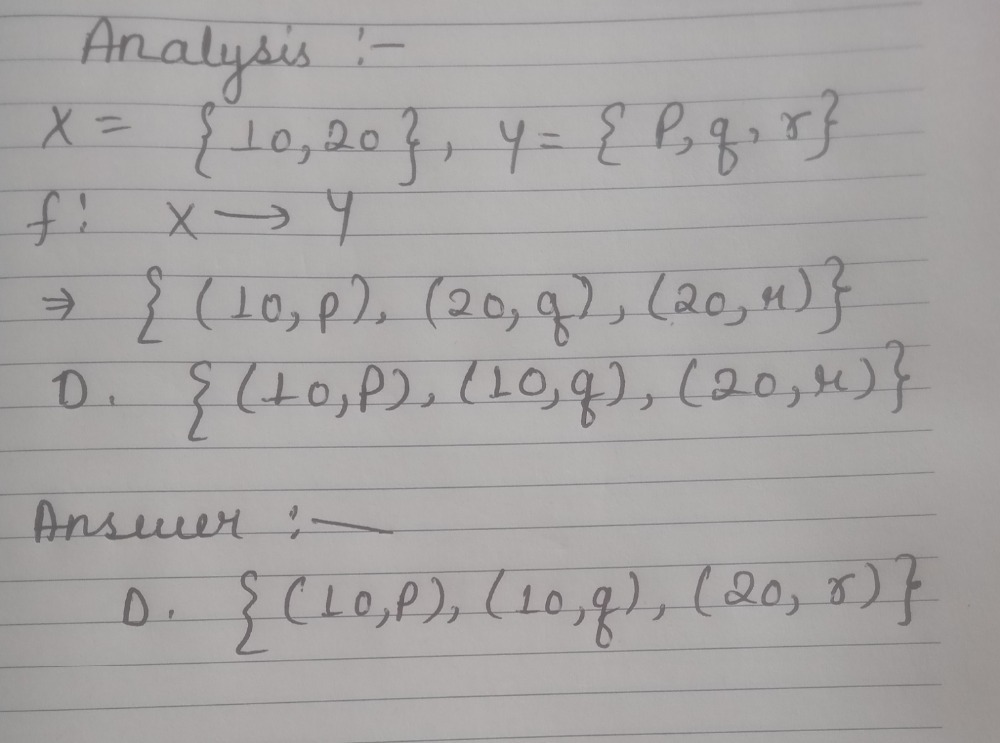 Analysis :-
X = {10, 20}, Y = {P, q, r}
f: X → Y
⇒ {(10, p), (20, q), (20, r)}
D. {(10, P), (10, q), (20, r)}
Answer :-
D. {(10, P), (10, q), (20, r)}